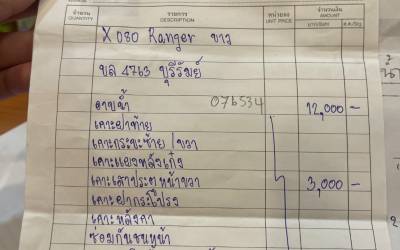 จำนวน รายการ หน่วยละ จำนวนเงิน
QUANTITY DESCRIPTION UNIT PRICE AMOUNT
X080 Ranger ขาว
ขล 4763 บุรีรัมย์
076534
อาบน้ำ 12,000 -
เคาะฝาท้าย
เคาะกระบะซ้าย/ขวา
เคาะแผงหลังเก๋ง
เคาะเสาประตูหน้าขวา 3,000 -
เคาะฝากระโปรง
เคาะหลังคา
ซ่อมกันชนหน้า